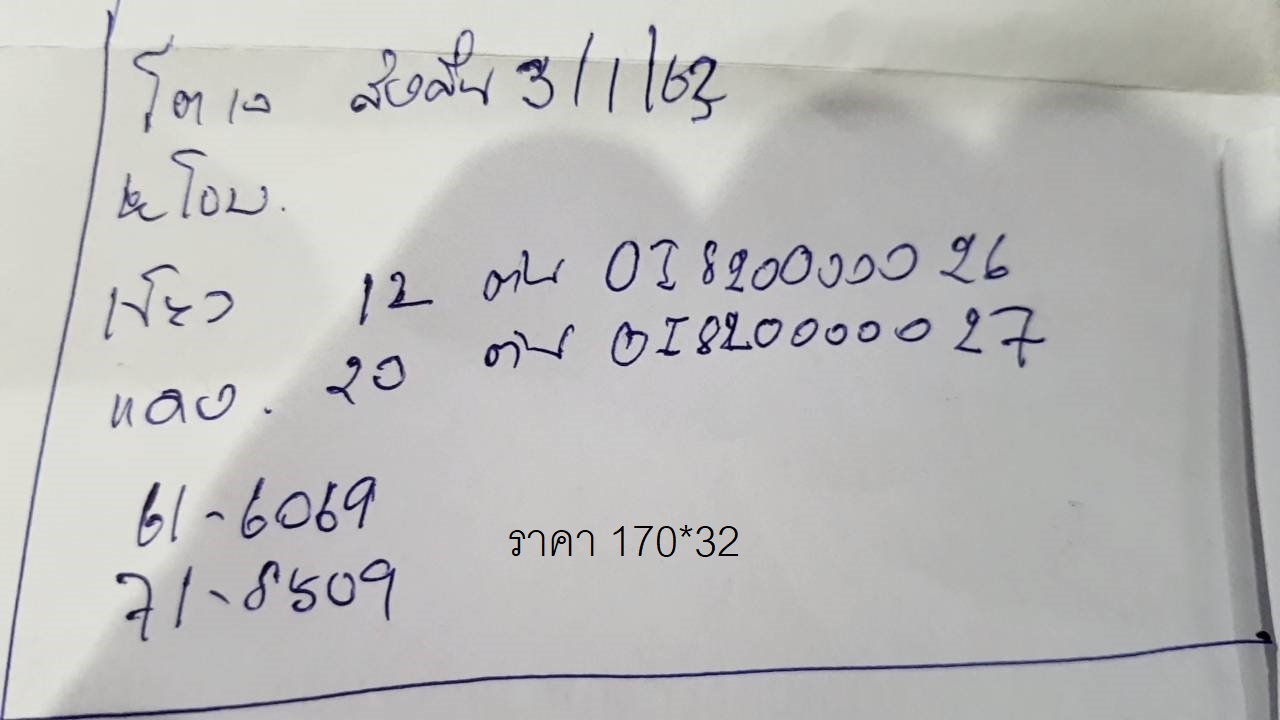 โกดาง ส่งสิน 3/1/62
ยูโอบ.
เขียว 12 ตัน OI820000026
แดง. 20 ตัน OI820000027
61-6069
71-8509
ราคา 170*32